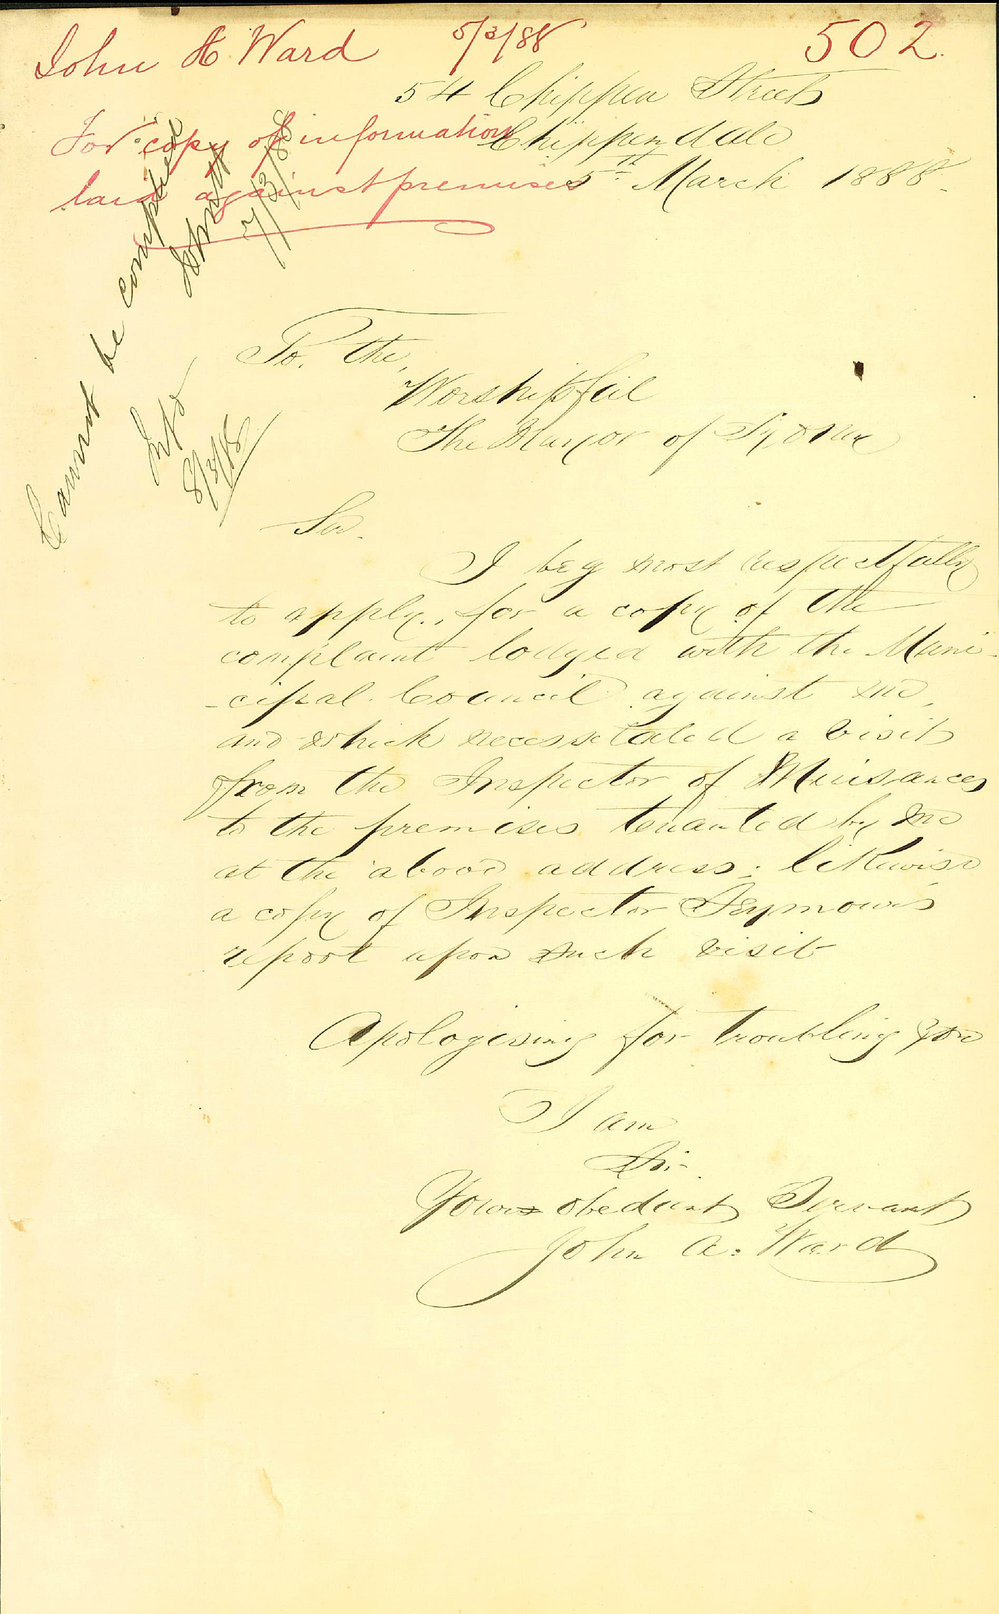 John H Ward 5/3/88 502
For copy of information
laid against premises
54 Chippen Street
Chippendale
5th March 1888.
Cannot be complied
7/3/88
8/3/88
To. the,
Worshipful
The Mayor of Sydney
Sir.
I beg most respectfully
to apply, for a copy of the
complaint lodged with the Muni-
-cipal Council against me,
and which necessetated a visit
from the Inspector of Nuisances
to the premises tenanted by me
at the above address; likewise
a copy of Inspector Seymour's
report upon such visit
Apologising for troubling you
I am
Sir
Your obediant Servant
John A. Ward